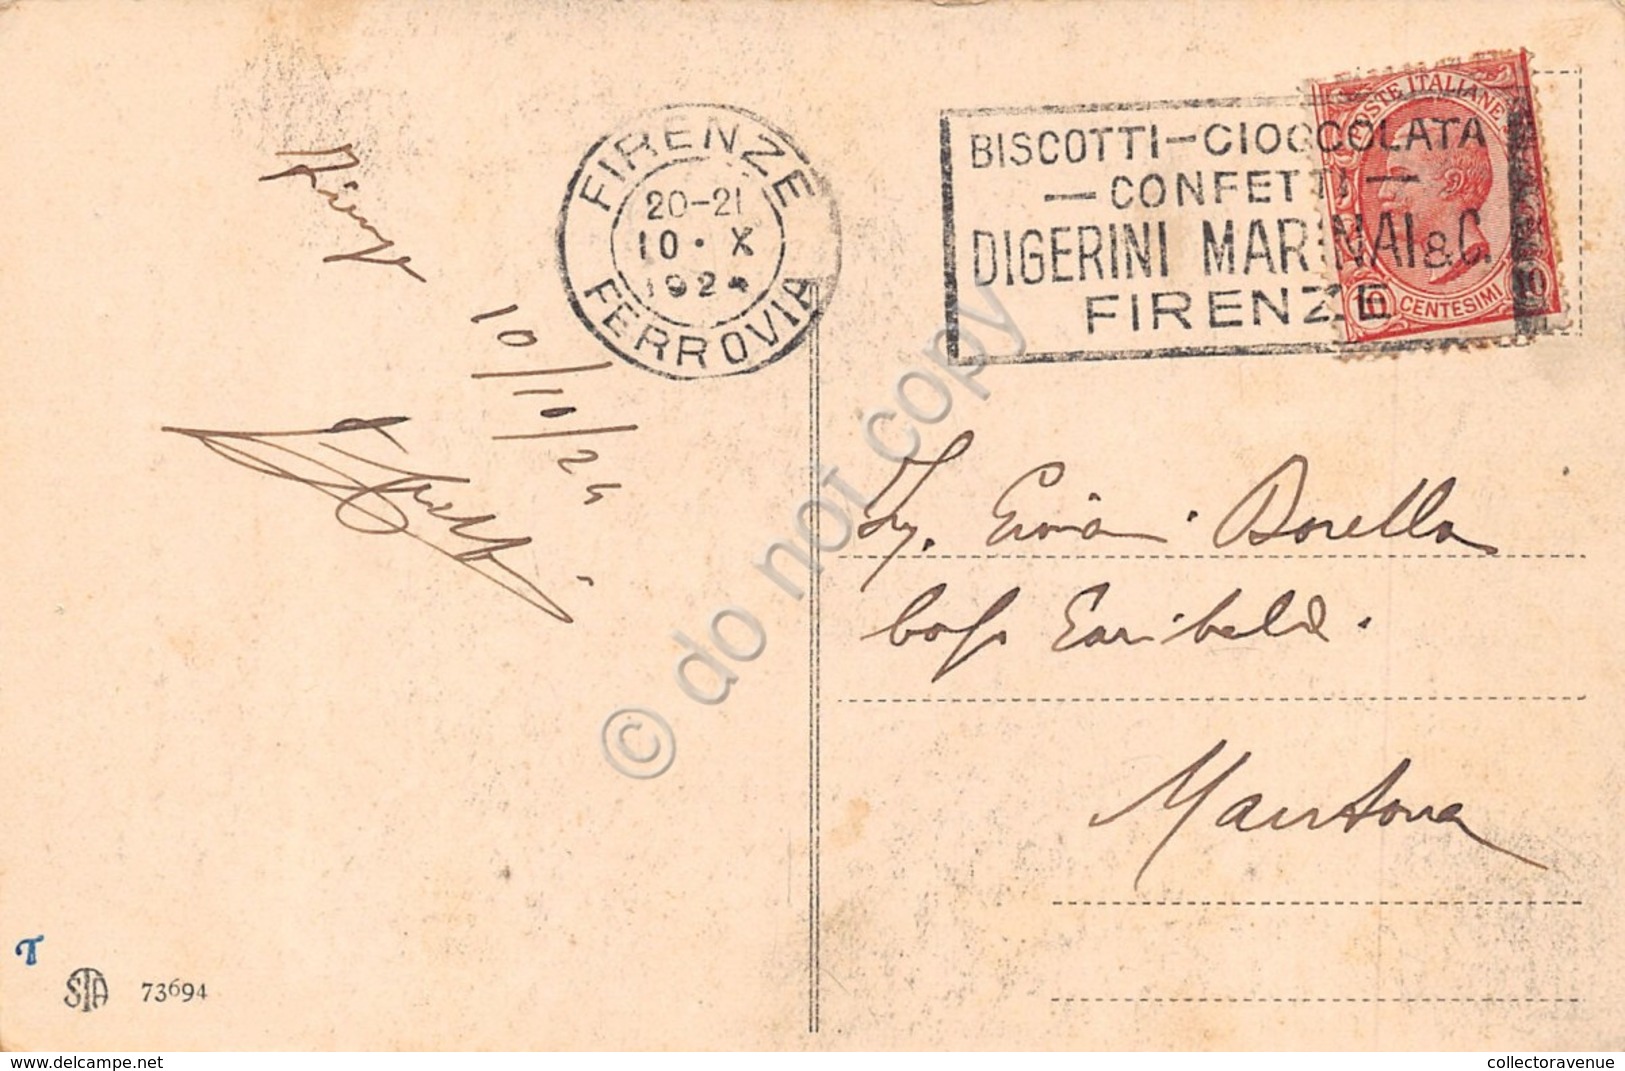 FIRENZE
20-21
10 · X
1924
FERROVIA
BISCOTTI-CIOCCOLATA
— CONFETTI —
DIGERINI MARINAI & C.
FIRENZE
POSTE ITALIANE
10 CENTESIMI 10
Firenze
10/10/24
Borella
Garibaldi.
Mantova
© do not copy
T
STA 73694
collectoravenue